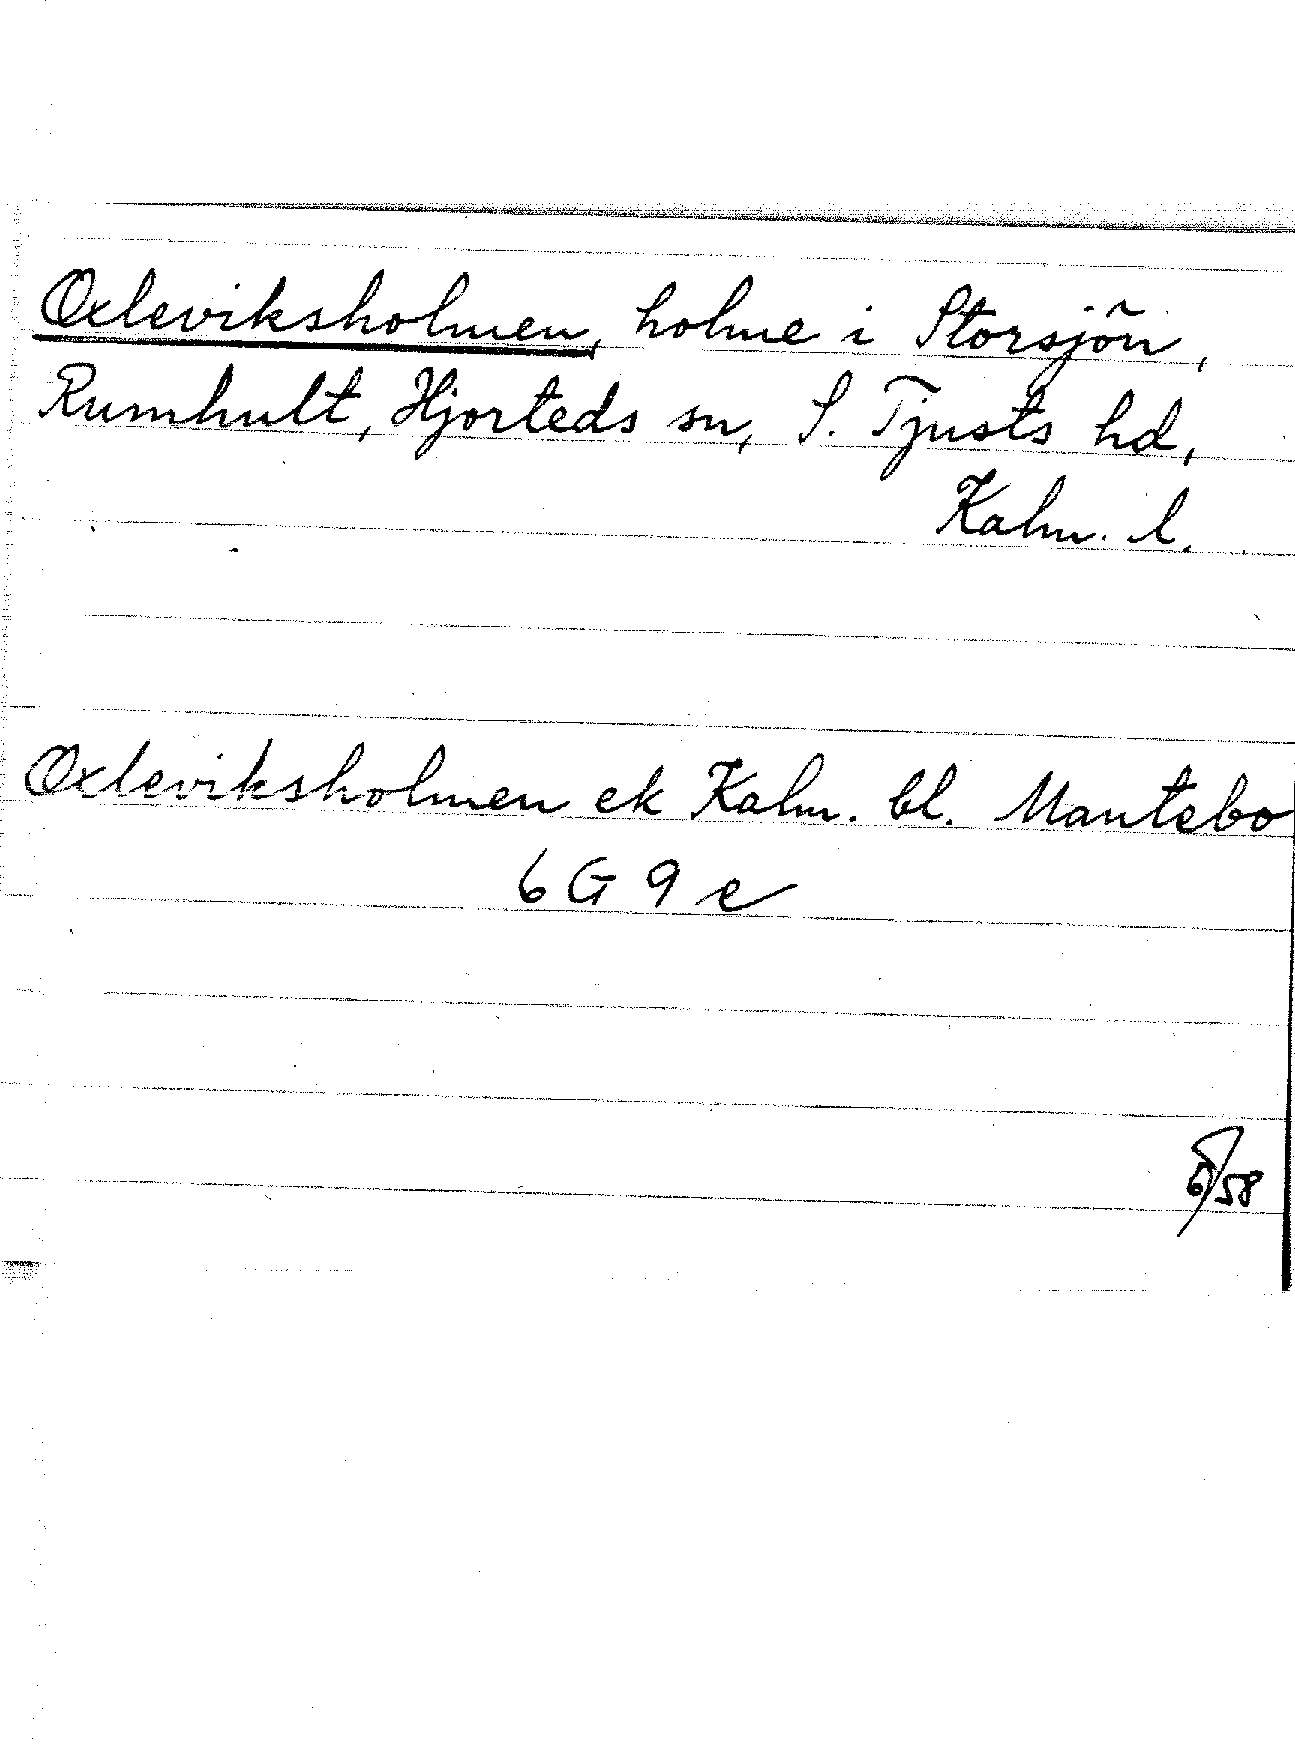 Oxleviksholmen, holme i Storsjön,
Rumhult, Hjorteds sn, S. Tjusts hd,
Kalm. l.
Oxleviksholmen ek Kalm. bl. Mantebo
6 G 9 e
/58